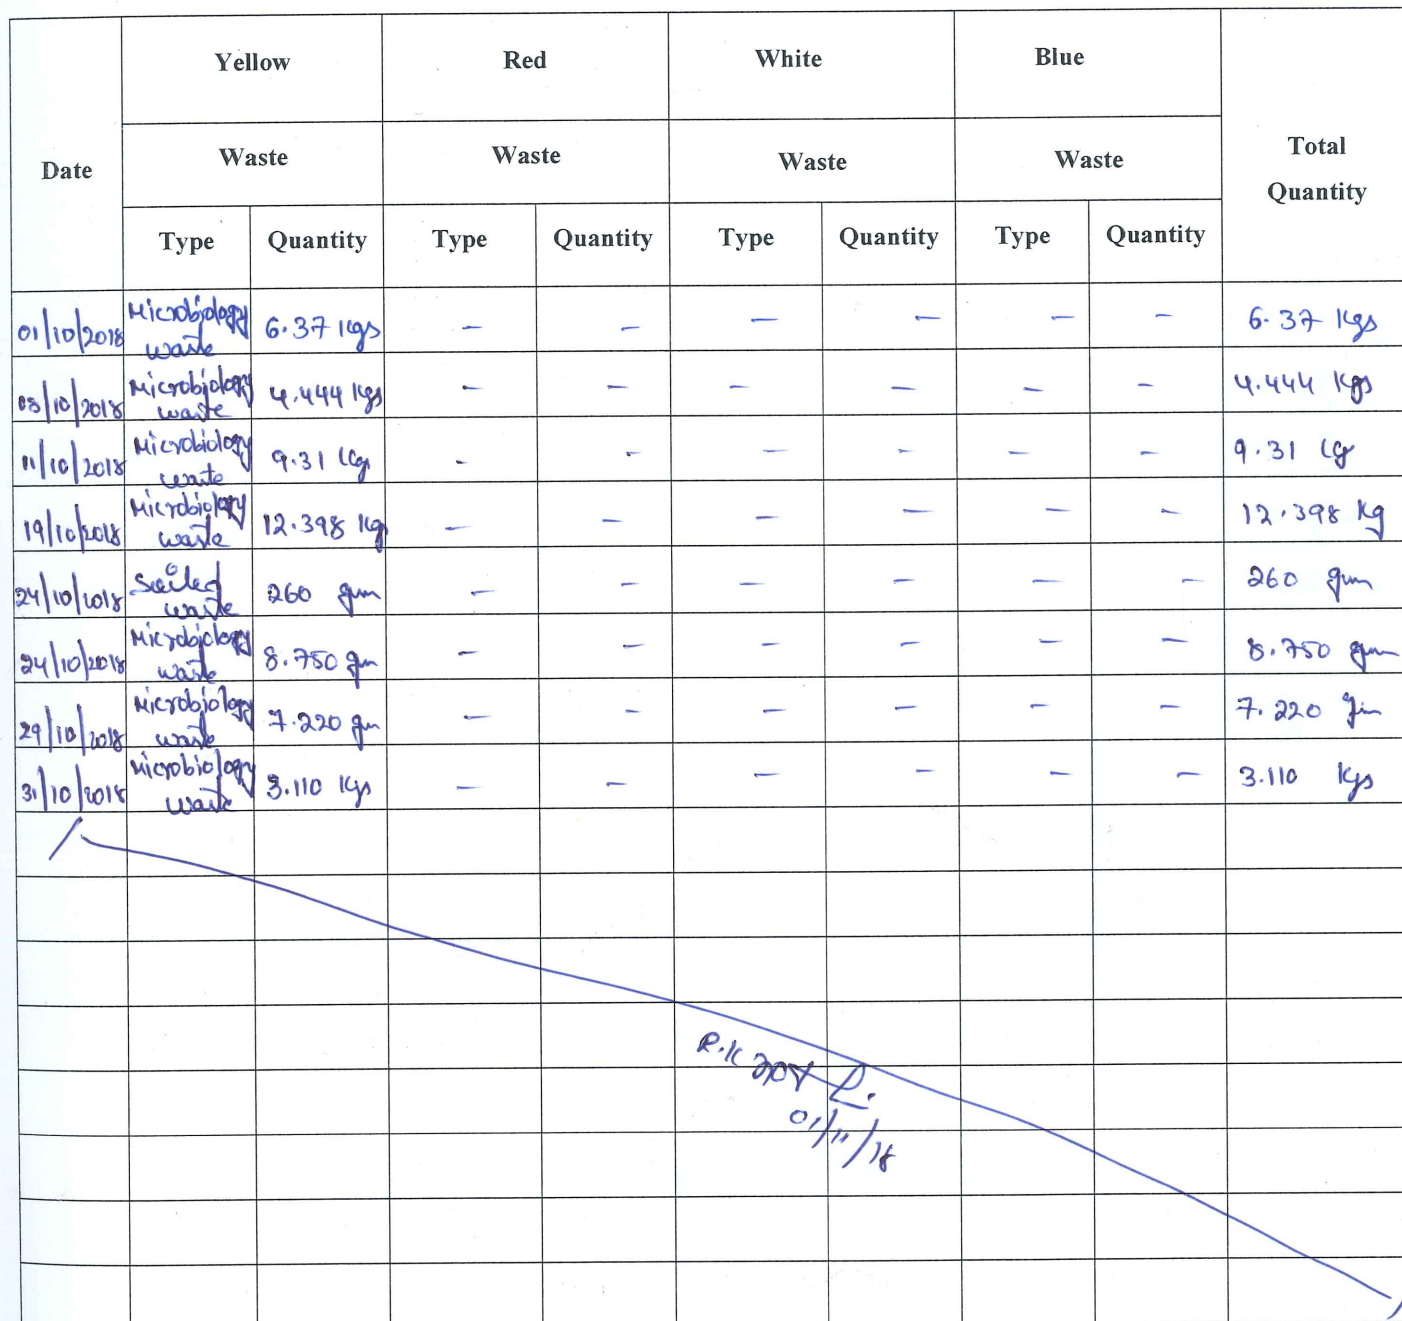 Yellow Red White Blue
Date Waste Waste Waste Waste Total Quantity
Type Quantity Type Quantity Type Quantity Type Quantity
01/10/2018 Microbiology waste 6.37 Kgs - - - - - - 6.37 Kgs
Microbiology waste 4.444 Kgs - - - - - - 4.444 Kgs
11/10/2018 Microbiology waste 9.31 Kg - - - - - - 9.31 Kg
19/10/2018 Microbiology waste 12.398 Kg - - - - - - 12.398 Kg
24/10/2018 Soiled waste 260 gm - - - - - - 260 gm
24/10/2018 Microbiology waste 8.750 gm - - - - - - 8.750 gm
29/10/2018 Microbiology waste 7.220 gm - - - - - - 7.220 gm
31/10/2018 Microbiology waste 3.110 Kgs - - - - - - 3.110 Kgs
R.K
01/11/18